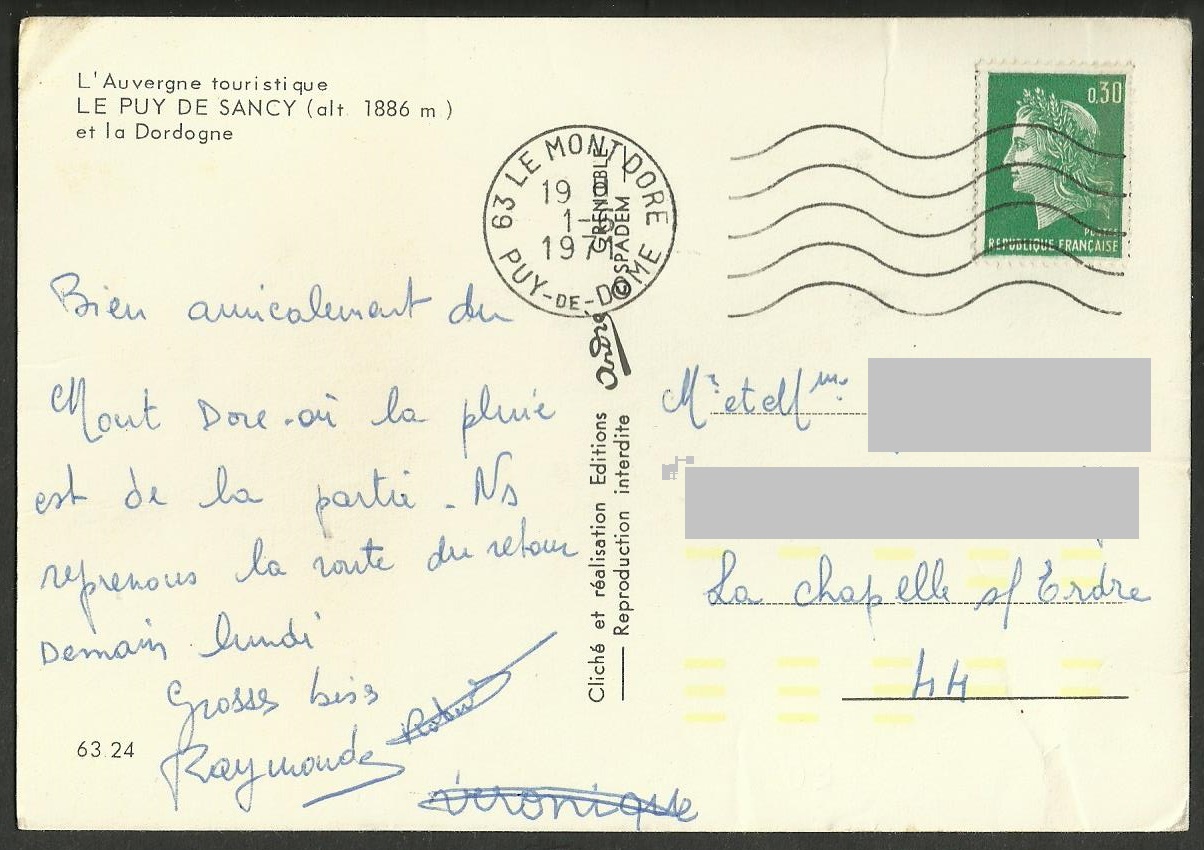 L'Auvergne touristique
LE PUY DE SANCY (alt. 1886 m)
et la Dordogne
63 LE MONT DORE
19 H
1-8
1971
PUY-DE-DOME
0,30
REPUBLIQUE FRANÇAISE
Bien amicalement du
Mont Dore. où la pluie
est de la partie. Ns
reprenons la route du retour
Demain lundi
Grosses bises
Raymonde
Véronique
63.24
Cliché et réalisation Editions André GRENOBLE
Reproduction interdite © SPADEM
Mr et Mme
La chapelle s/ Erdre
44